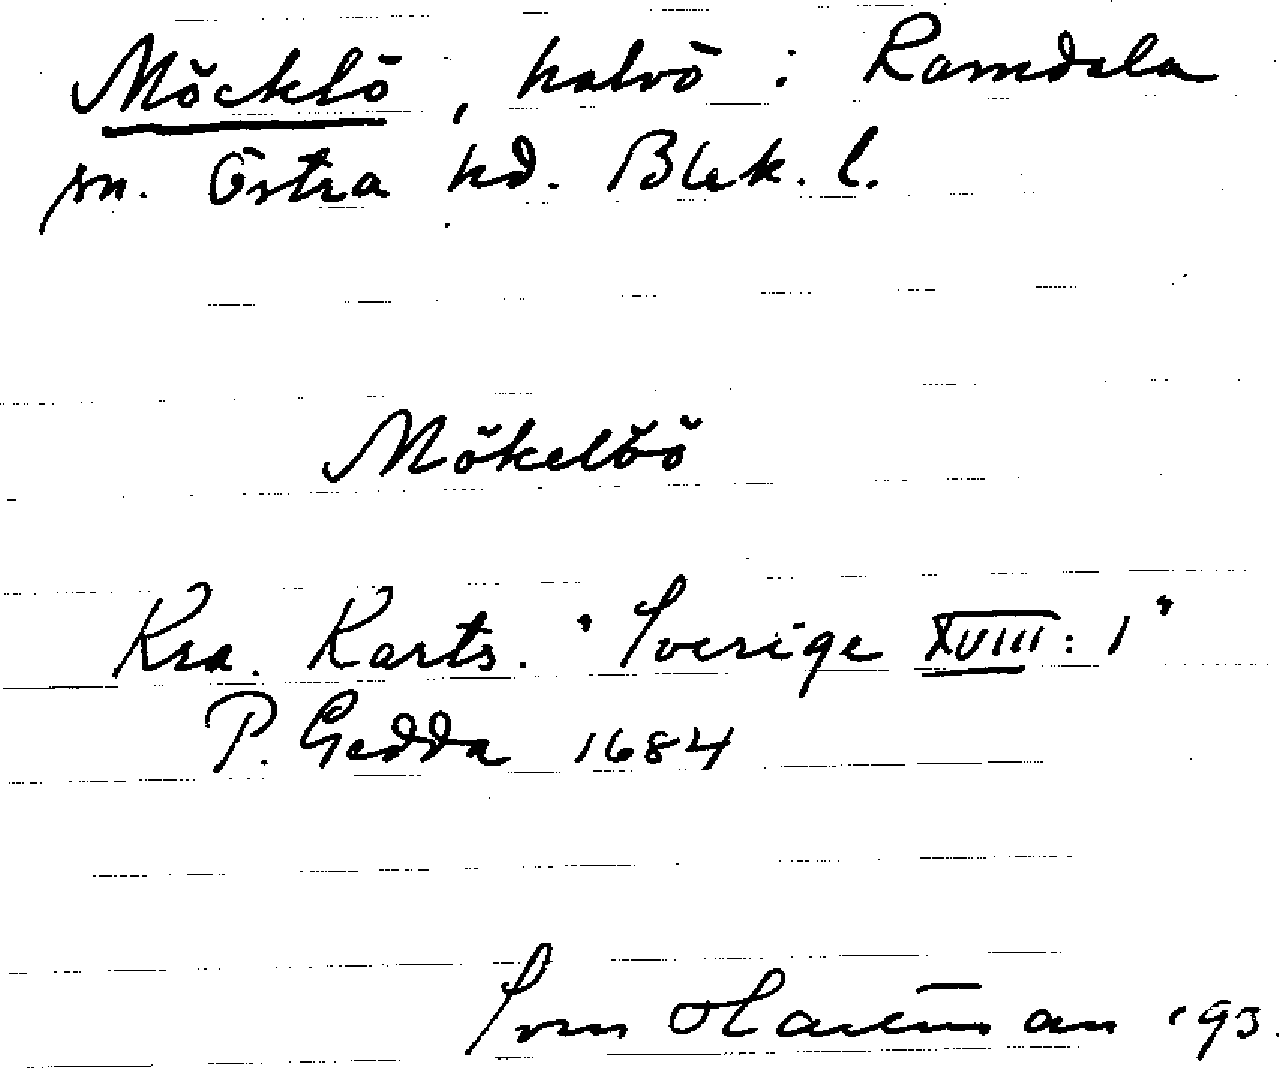 Möcklö, halvö i Ramdala
sn. Östra hd. Blek. l.
Mökelöö
Kra. Karts. "Sverige XVIII: 1"
P. Gedda 1684
Sven '93.